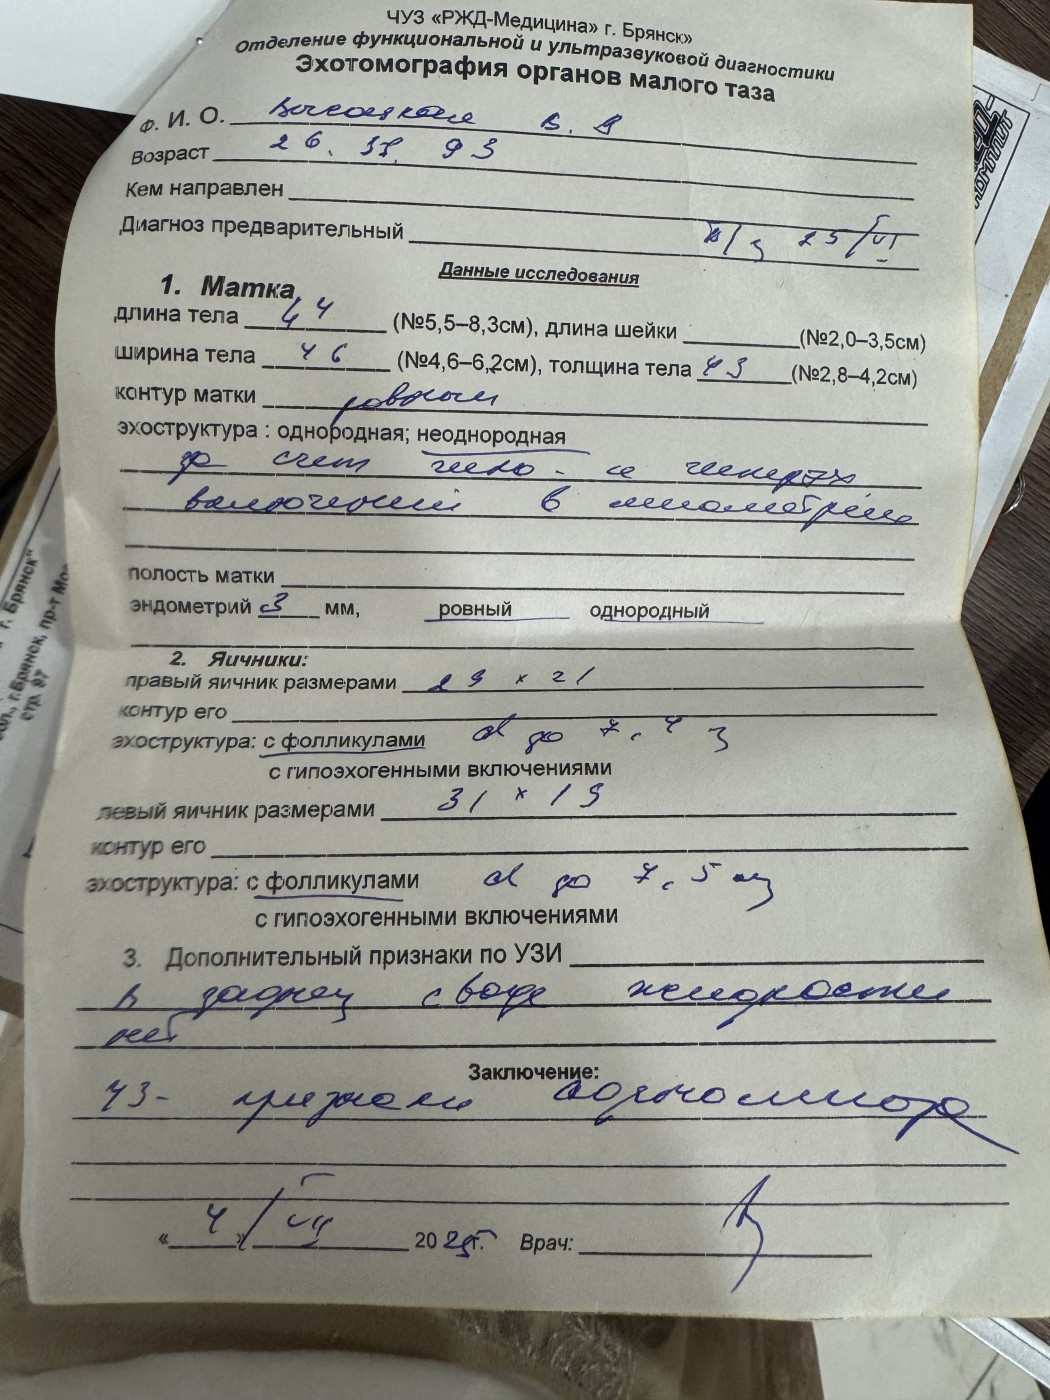 ЧУЗ «РЖД-Медицина» г. Брянск»
Отделение функциональной и ультразвуковой диагностики
Эхотомография органов малого таза
Ф. И. О. В. В
Возраст 93
Кем направлен
Диагноз предварительный 25/VI
Данные исследования
1. Матка
длина тела 44 (№5,5–8,3см), длина шейки (№2,0–3,5см)
ширина тела 46 (№4,6–6,2см), толщина тела 43 (№2,8–4,2см)
контур матки ровный
эхоструктура : однородная; неоднородная
за счет гипо - и гиперэх.
включений в миометрии
полость матки
эндометрий 3 мм, ровный однородный
2. Яичники:
правый яичник размерами 29 x 21
контур его
эхоструктура: с фолликулами d до 7,4
с гипоэхогенными включениями
левый яичник размерами 31 x 19
контур его
эхоструктура: с фолликулами d до 7,5
с гипоэхогенными включениями
3. Дополнительный признаки по УЗИ
В заднем своде жидкости
нет
Заключение:
УЗ- признаки аденомиоза
«4» VII 2025г. Врач:
г. Брянск"
г.Брянск, пр-т Мос
стр. 97